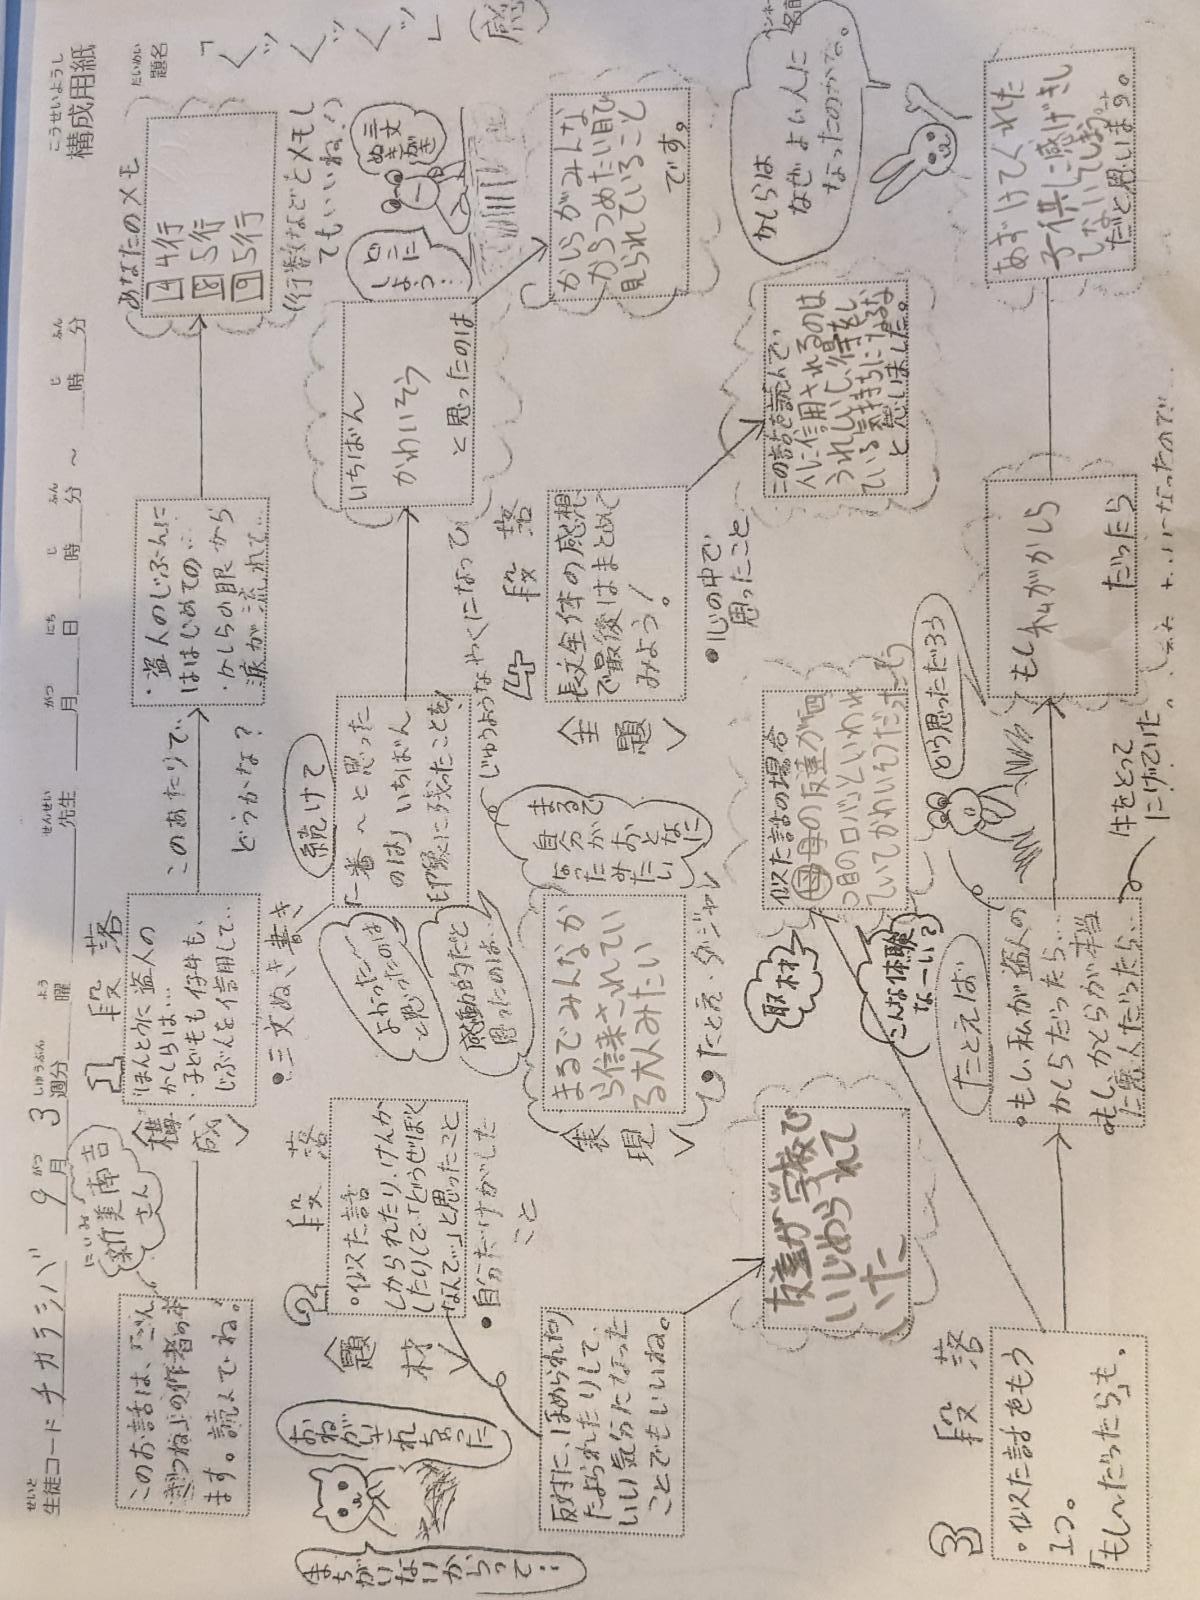 構成用紙
こうせいようし
生徒コード チカラシバ 9月 3週分 曜 先生 月 日 時 分 ～ 時 分
題名
だいめい
このお話は、「ごん
ぎつね」の作者の本
ます。読んでね。
にいみ
新美南吉
さん
1 段落
構成
「ほんとうに盗人の
かしらは…
・子どもも仔牛も、
じぶんを信用して…
このあたりで、
どうかな？
・盗人のじぶんに
はじめての…
・かしらの眼から
涙が流れて…
あなたのメモ
4 4行
8 5行
9 5行
(行数などをメモし
てもいいね！)
2 段落
題材
・似た話
しかられたり、けんか
したりして、「どうせぼく
なんて…」と思ったこと
●自分だけがした
こと
●三文ぬき書き
続けて
「一番～と思った
のは」いちばん
印象に残ったことを
いちばん
かわいそう
と思ったのは
かしらがみんな
からつめたい目で
見られていること
です。
三文
ぬき
がき
どこに
しよう…
よかった
と思ったのは
感動的だと
思ったのは…
おねが
れちゃった
まちがいないからって…
反対に、ほめられたり
たよられたりして、
いい気分になった
ことでもいいね。
友達が学校で
いじめられて
いた
表現
●たとえ・ダジャレ
まるでみんなか
ら信来されてい
る大人みたい
まるで
自分が
おとなに
なったみたい
じゅうようなやくになって
4 段落
主題
長文全体の感想
で最後はまとめて
みよう！
●心の中で
思ったこと
この話を読んで、
人に信用されるのは
うれしいし、得をし
ている気持ちになるな
と思いました。
かしらは
なぜよい人に
なったのかな。
取材
こんな体験
な～い？
似た話の場合
母の友達が四
つ目のロバといわれ
ていてかわいそうだった
3 段落
・似た話をもう
1つ。
「もし～だったら」も。
たとえば
●もし、私が盗人の
かしらだったら…
●もし、かしらが本当
に悪人だったら…
どう思っただろう
牛をとって
にげていた。
もし私がかしら
だったら
あずけてくれた
子供に感げきし
しないてしまう
だと思います。